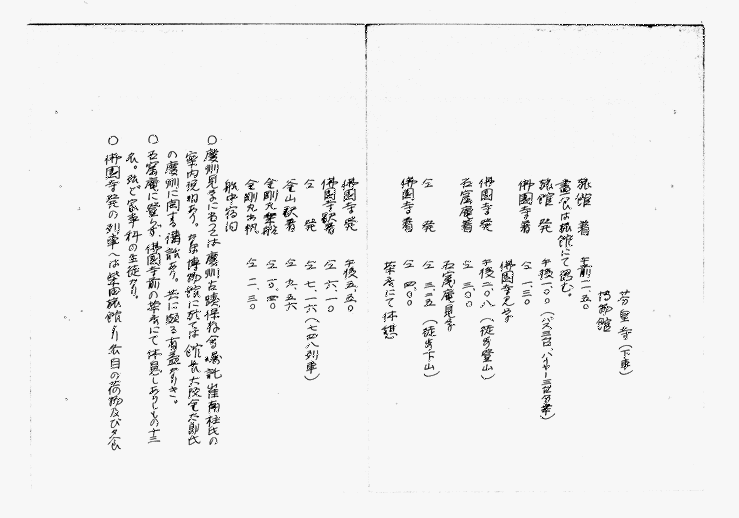 芬皇寺(下車)
博物館
旅館 着 午前一一、五〇
晝食は旅館にて認む。
旅館 発 午後一、〇〇
佛國寺着 仝 一、三〇
佛國寺見学
佛國寺発 午後二、〇八(徒歩登山)
石窟庵着 仝 三、〇〇
石窟庵見学
仝 発 仝 三、三五(徒歩下山)
佛國寺着 仝 四、〇〇
茶店にて休憩
佛國寺発 午後五、五〇
佛國寺駅着 仝 六、一〇
仝 発 仝 七、一六(七四八列車)
釜山駅着 仝 九、五六
金剛丸乗船 仝 一〇、四〇
金剛丸出帆 仝 一一、三〇
船中宿泊
〇慶州見学に当つては慶州古蹟保存会嘱託崔南柱氏の
案内説明あり。
館長大阪金太郎氏
の慶州に関する講話あり。共に頗る有益なりき。
〇石窟庵に登らず、佛國寺前の茶店にて休息しありしもの十三
名。殆ど家事科の生徒なり。
〇佛國寺発の列車へは柴田旅館より名目の荷物及び夕食